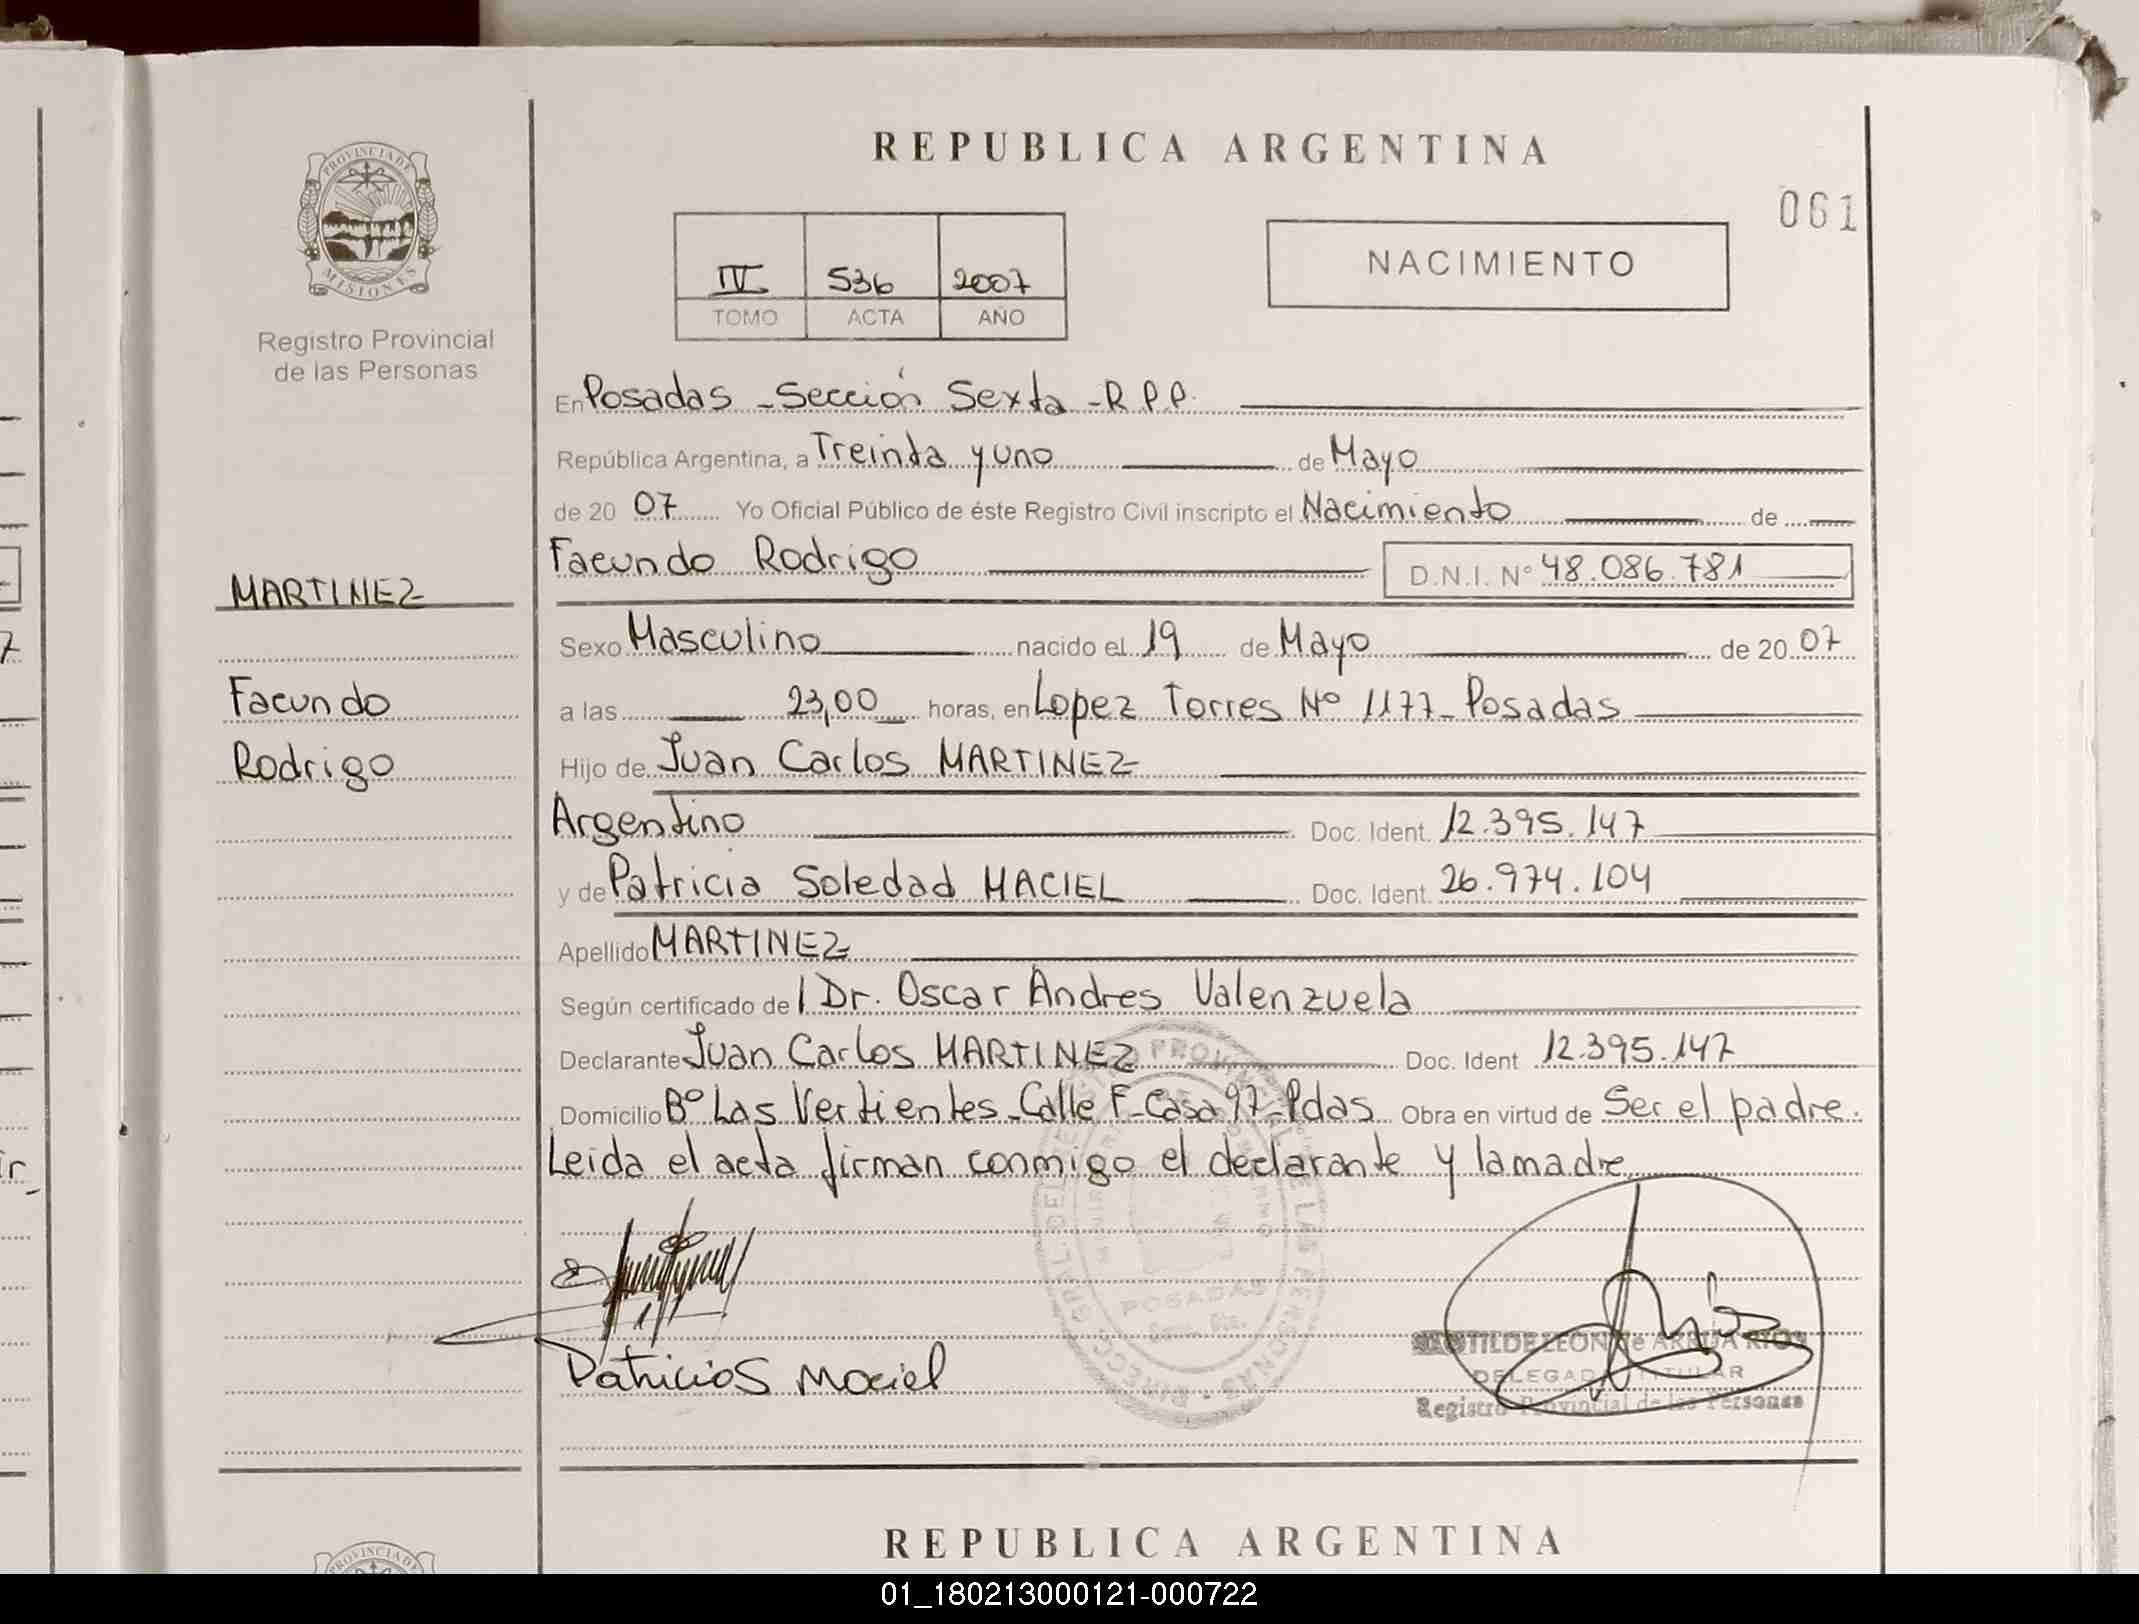 REPUBLICA ARGENTINA
061
PROVINCIA DE
MISIONES
Registro Provincial
de las Personas
IV 536 2007
TOMO ACTA AÑO
NACIMIENTO
En Posadas - Sección Sexta - R.P.P.
República Argentina, a Treinta y uno de Mayo
de 20 07 Yo Oficial Público de éste Registro Civil inscripto el Nacimiento de
Facundo Rodrigo D.N.I. Nº 48.086.781
MARTINEZ
Facundo
Rodrigo
Sexo Masculino nacido el 19 de Mayo de 20 07
a las 23,00 horas, en Lopez Torres Nº 1177 - Posadas
Hijo de Juan Carlos MARTINEZ
Argentino Doc. Ident. 12.395.147
y de Patricia Soledad MACIEL Doc. Ident. 26.974.104
Apellido MARTINEZ
Según certificado de l Dr. Oscar Andres Valenzuela
Declarante Juan Carlos MARTINEZ Doc. Ident 12.395.147
Domicilio Bº Las Vertientes - Calle F - Casa 97 - Pdas Obra en virtud de Ser el padre.
Leida el acta firman conmigo el declarante y la madre
POSADAS
Patricia S Maciel
LEON de ARRUA RIOS
DELEGADA TITULAR
Registro Provincial de las Personas
REPUBLICA ARGENTINA
01_180213000121-000722